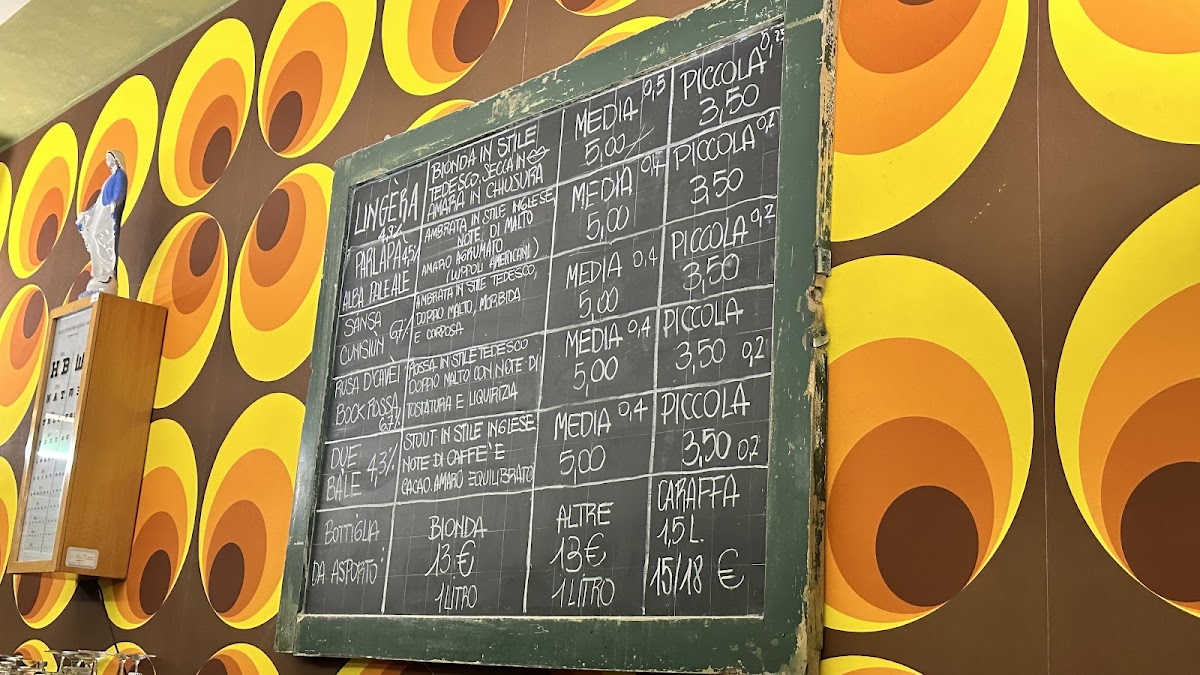 LINGÈRA
4,9%
BIONDA IN STILE
TEDESCO. SECCA IN
AMARA IN CHIUSURA
MEDIA 0,5
5,00
PICCOLA 0,25
3,50
PARLAPÀ 4,5%
ALBA PALE ALE
AMBRATA IN STILE INGLESE
NOTE DI MALTO
AMARO AGRUMATO
(LUPPOLI AMERICANI)
MEDIA 0,4
5,00
PICCOLA 0,2
3,50
SANSÀ
CUNISIUN 6,7%
AMBRATA IN STILE TEDESCO,
DOPPIO MALTO, MORBIDA
E CORPOSA
MEDIA 0,4
5,00
PICCOLA 0,2
3,50
RUSA D'CAVEI
BOCK ROSSA
6,7%
ROSSA IN STILE TEDESCO
DOPPIO MALTO CON NOTE DI
TOSTATURA E LIQUIRIZIA
MEDIA 0,4
5,00
PICCOLA
3,50 0,2
DUE
BALE 4,3%
STOUT IN STILE INGLESE
NOTE DI CAFFE' E
CACAO. AMARO EQUILIBRATO
MEDIA 0,4
5,00
PICCOLA
3,50 0,2
BOTTIGLIA
DA ASPORTO
BIONDA
13 €
1 LITRO
ALTRE
13 €
1 LITRO
CARAFFA
1,5 L.
15/18 €